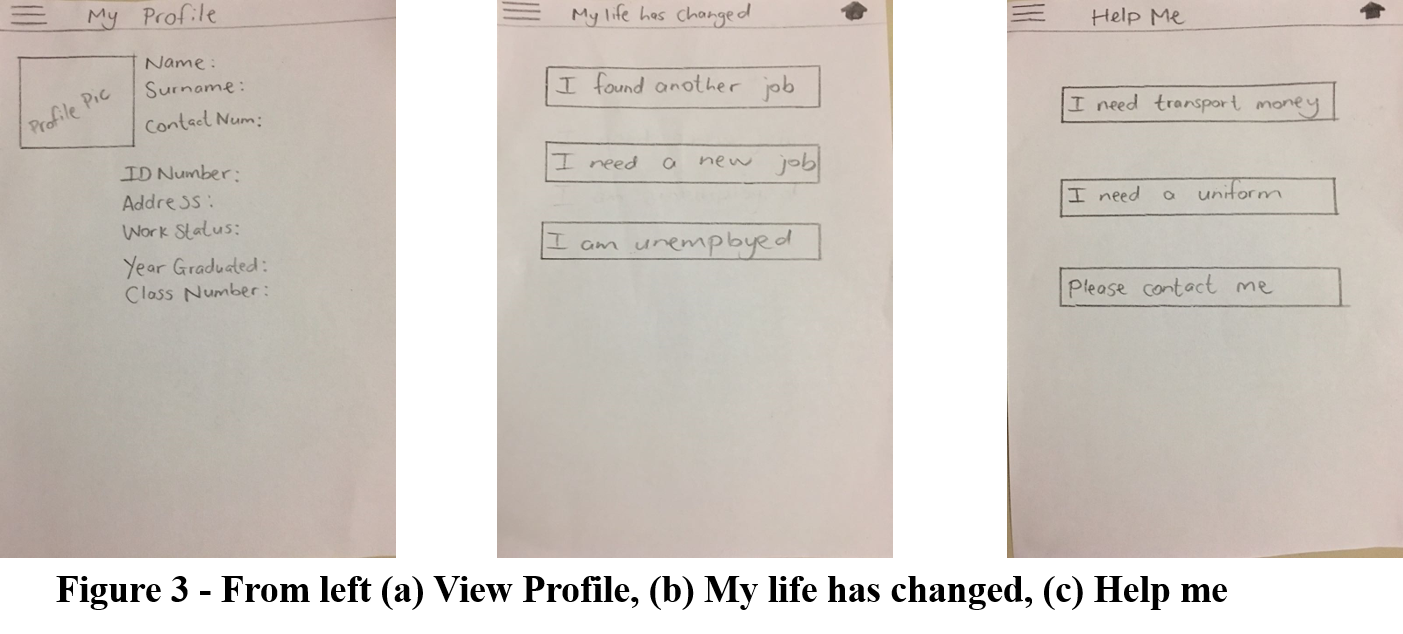 My Profile
Profile Pic
Name :
Surname :
Contact Num :
ID Number :
Address :
Work Status:
Year Graduated :
Class Number :
My life has changed
I found another job
I need a new job
I am unemployed
Help Me
I need transport money
I need a uniform
Please contact me
Figure 3 - From left (a) View Profile, (b) My life has changed, (c) Help me